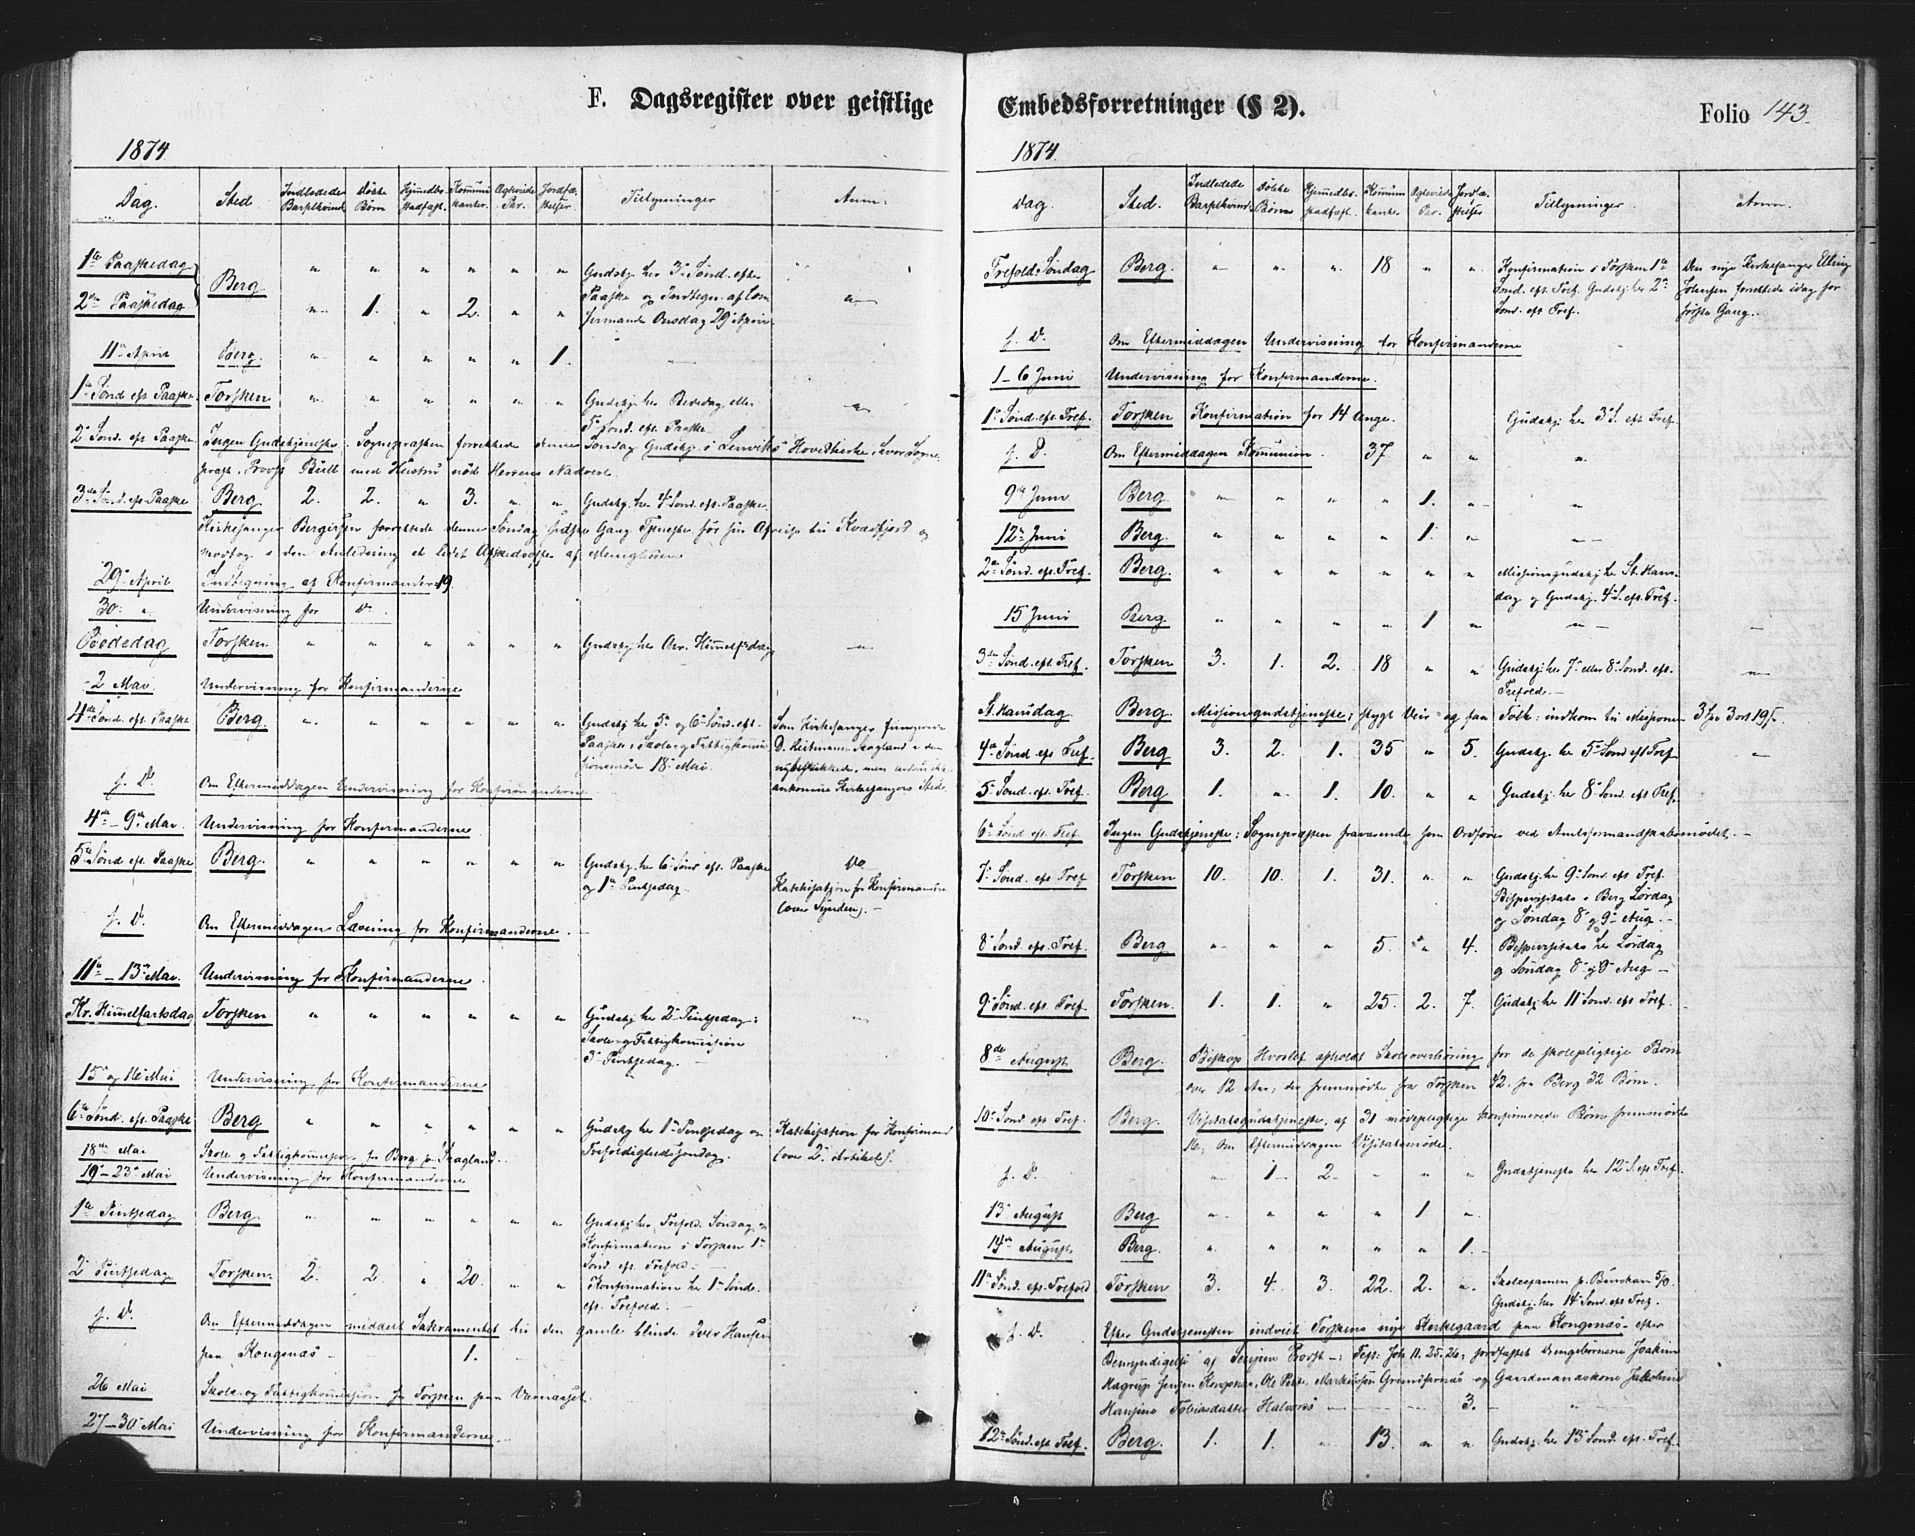 F. Dagsregister over geistlige
1874
Dag. Sted Indledede Barselkvind. Døbte Børn Hjemmedbs. stadfæst. Kommuni kanter. Ægteviede Par. Jordfæ stelser Tillysninger Anm:
1ste Paaskedag Berg " " " " " " Gudstj. her 3die Sønd. efter
2den Paaskedag " 1. " 2. " " Paaske og Indtegn. af Con
firmander Onsdag 29de April
11te April Berg " " " " " 1.
1ste Sønd efs. Paaske Torsken " " " " " " Gudstj. her Bededag eller
5te Sønd. efs. Paaske
2den Sønd. efs Paaske Ingen Gudstjeneste: Sognepræsten forrettede denne Søndag Gudstj. i Lenviks Hovedkirke, hvor Sogne
præst, Provst Bull med Hustru nød Herrens Nadvere.
3die Sønd. efs. Paaske Berg 2. 2. " 3. " " Gudstj. her 4de Sønd. efs. Paaske
Kirkesanger Bergersen forrettede denne Søndag sidste Gang Tjeneste før sin Afreise til Kvædfjord og
modtog i den Anledning et lidet Afskedsoffer af Menigheden
29de April Indtegning af Konfirmander 19.
30te " Undervisning for do
Bededag Torsken " " " " " " Gudstj. her Kr. Himmelf.dag
2 Mai Undervisning for Konfirmanderne
4de Sønd. efs. Paaske Berg. " " " " " " Gudstj her 5te og 6te Sønd. eft. Som Kirkesanger fungerede
Paaske; Skole og Fattigkommis D. Heitmann Skagland i den
sionsmøde 18de Mai. nybeskikkede, men endnu ikke
f. D. Om Eftermiddagen Undervisning for Konfirmanderne ankomne Kirkesangers Sted.
4de - 9de Mai. Undervisning for Konfirmanderne
5te Sønd efs. Paaske Berg. " " " " " " Gudstj. her 6te Sønd efs. Paaske Do
og 1ste Pintsedag. Katekisation for Konfirmander
(over Synden). -
f. D. Om Eftermiddagen Læsning for Konfirmanderne.
11te - 13de Mai. Undervisning for Konfirmanderne
Kr. Himmelfartsdag Torsken " " " " " " Gudstj her 2den Pintsedag:
Skole og Fattigkommission
3die Pintsedag. -
15de og 16de Mai Undervisning for Konfirmanderne
6te Sønd. efs. Paaske Berg " " " " " " Gudstj her 1ste Pintsedag og Katekisation for Konfirmand
18de Mai Skole og Fattigkommission for Berg p. Skagland. Trefoldighedssøndag. (over 2den Artikel).
19de - 23de Mai Undervisning for Konfirmanderne
1ste Pintsedag Berg " " " " " " Gudstj her Trefold. Søndag,
Konfirmation i Torsken 1ste
Sønd efs. Trefold. -
2den Pintsedag Torsken. 2. 2. " 20. " " Konfirmation her 1ste Sønd.
efs. Trefold. -
f. D. Om Eftermiddagen meddelt Sakramentet til den gamle blinde Iver Hansen
paa Kongsnæs - 1. -
26 Mai Skole og Fattigkommission for Torsken paa
27 - 30te Mai Undervisning for Konfirmanderne. -
Embedsforretninger (§ 2). Folio 143.
1874.
Dag. Sted. Indledede Barselkvind. Døbte Børn Hjemmedbs. stadfæst. Kommuni kanter Ægteviede Par. Jordfæ stelser Tillysninger. Anm.
Trefold. Søndag Berg. " " " 18 " " Konfirmation i Torsken 1ste Den nye Kirkesanger Elling
Sønd. efs. Tref. Gudstj. her 2den Johnsen forrettede idag for
Sønd. efs Tref. første Gang. -
f. D. Om Eftermiddagen Undervisning for Konfirmanderne
1 - 6 Juni Undervisning for Konfirmanderne.
1ste Sønd. efs. Tref. Torsken Konfirmation for 14 Unge. Gudstj her 3die S. efs Tref.
f. D. Om Eftermiddagen Kommunion. 37 " " "
9de Juni Berg " " " " 1. " "
12te Juni Berg. " " " " 1. " "
2den Sønd. efs. Tref. Berg. " " " " " " Missionsgudstj. her St. Hans-
dag og Gudstj. 4de S. efs. Tref.
15 Juni Berg " " " " 1 " "
3die Sønd. efs Tref. Torsken 3. 1. 2. 18 " " Gudstj. her 7de eller 8de Sønd. efs.
Trefold. -
St. Hansdag Berg. Missionsgudstjeneste; stygt Veir og faa Folk: indkom til Missionen 3 Spd 3 ort 19 s.
4de Sønd. efs Tref. Berg 3. 2. 1. 35 " 5. Gudstj. her 5te Sønd efs Tref "
5te Sønd. efs. Tref. Berg 1. " 1. 10. " " Gudstj. her 8de Sønd efs Tref.
6te Sønd efs. Tref Ingen Gudstjeneste: Sognepræsten fraværende som Ordfører ved Amtsformandskabsmødet. -
7de Sønd. efs Tref Torsken 10. 10. 1. 31. " " Gudstj her 9de Sønd efs. Tref.
Bispevisitats i Berg Lørdag
og Søndag 8de og 9de Aug. -
8de Sønd. efs. Tref. Berg " " " 5. " 4. Bispevisitats her Lørdag
og Søndag 8de og 9de Aug. -
9de Sønd. efs. Tref. Torsken. 1. 1. " 25. 2. 7. Gudstj. her 11te Sønd. efs Tref.
8de August. Berg. Biskop Hvoslef afholdt Skoleoverhøring for de skolepligtige Børn
over 12 Aar; der fremmødte fra Torsken 42, fra Berg 32 Børn.
10de Sønd efs Tref. Berg. Visitatsgudstjeneste, af 31 mødepligtige konfirmerede Børn fremmødte
16; Om Eftermiddagen Visitatsmøde.
f. D. " 1 2. " " " Gudstjeneste her 12te S. efs Tref.
13de August Berg " " " " 1 "
14de August. Berg. " " " " " 1. -
11te Sønd. efs. Trefold Torsken 3. 4. 3. 22. 2. " Skoleexamen p.
Gudstj. her 14de Sønd efs Tref.
f. D. Efter Gudstjenesten indviet Torskens nye Kirkegaard paa Kongsnæs efter
Bemyndigelse af Senjens Provst -: Text: Joh. 11. 25. 26; jordfæstet drengebørnene Joakim
Hagrup Jensen Kongsnæs, Ole Peter Markussen og Gaardmandskone Jakobine
Hansine Tobiasdatter Halvards - - - 3. "
12te Sønd. efs Tref. Berg. 1. 1. " 13. " " Gudstj. her 13de Sønd. efs. Tref.